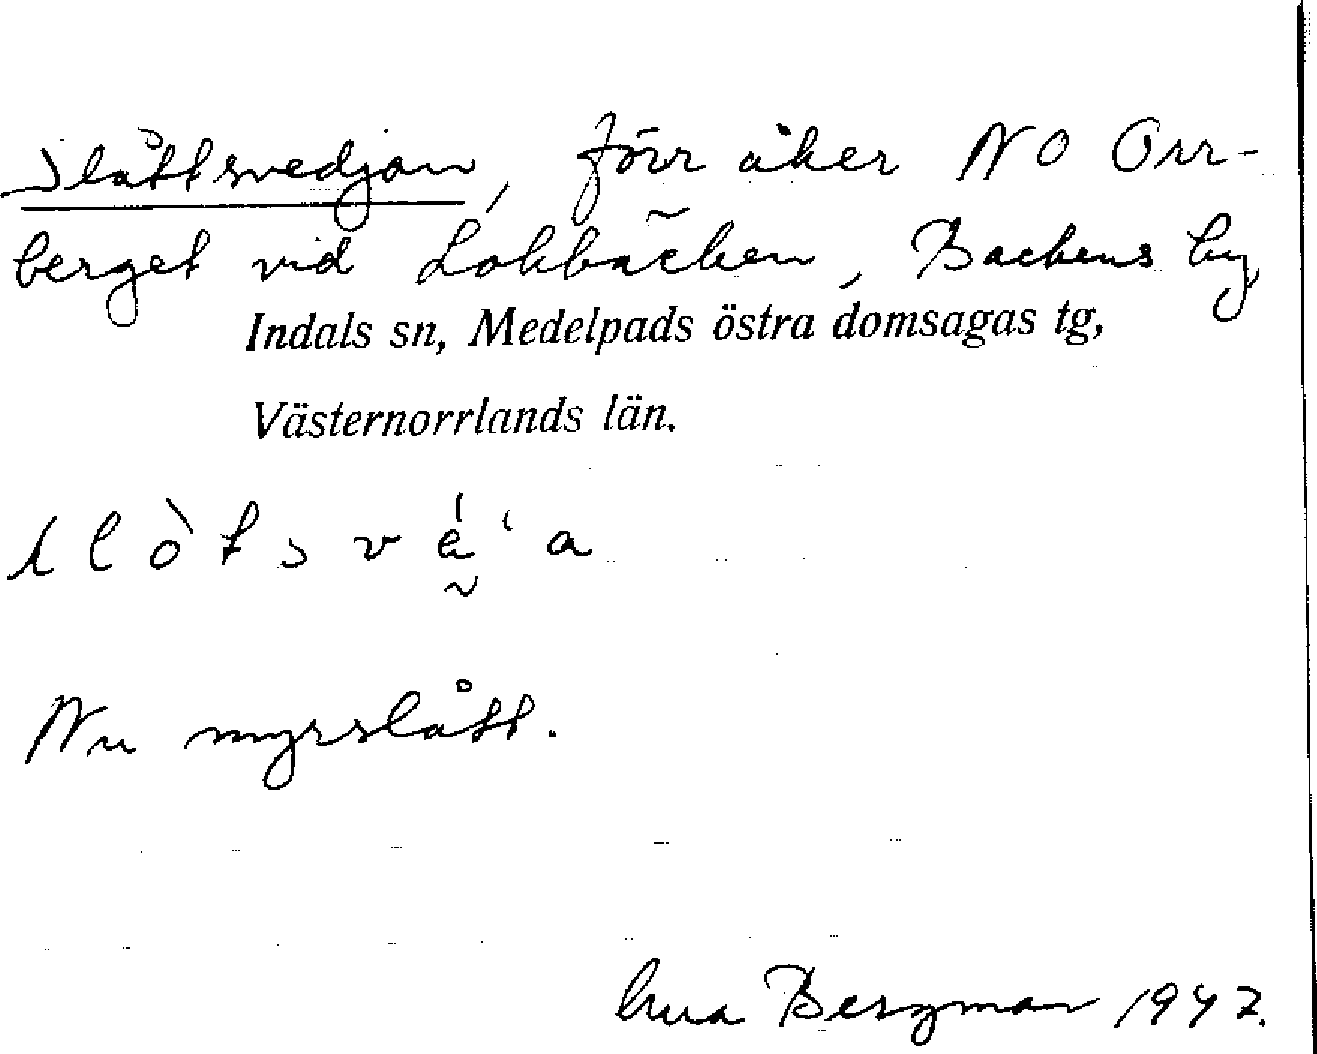 Slåttsvedjan, förr åker NO Orr-
berget vid Lokbäcken, Backens by
Indals sn, Medelpads östra domsagas tg,
Västernorrlands län.
slòtsvǽ'a
Nu myrslått.
Bergman 1942.